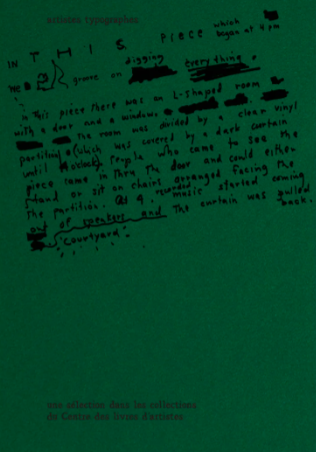 artistes typographes
IN THIS PIECE which began at 4 pm
we groove on digging everything.
in This piece There was an L-shaped room
with a door and a windows. a clear vinyl
The room was divided by
partition (which was covered by a dark curtain
until o'clock. People who came to see the
piece came in Thru The door and could either
stand or sit on chairs arranged facing the
The partition. At 4, recorded music started coming
out of speakers and The curtain was pulled back.
"Courtyard"
une sélection dans les collections
du Centre des livres d'artistes